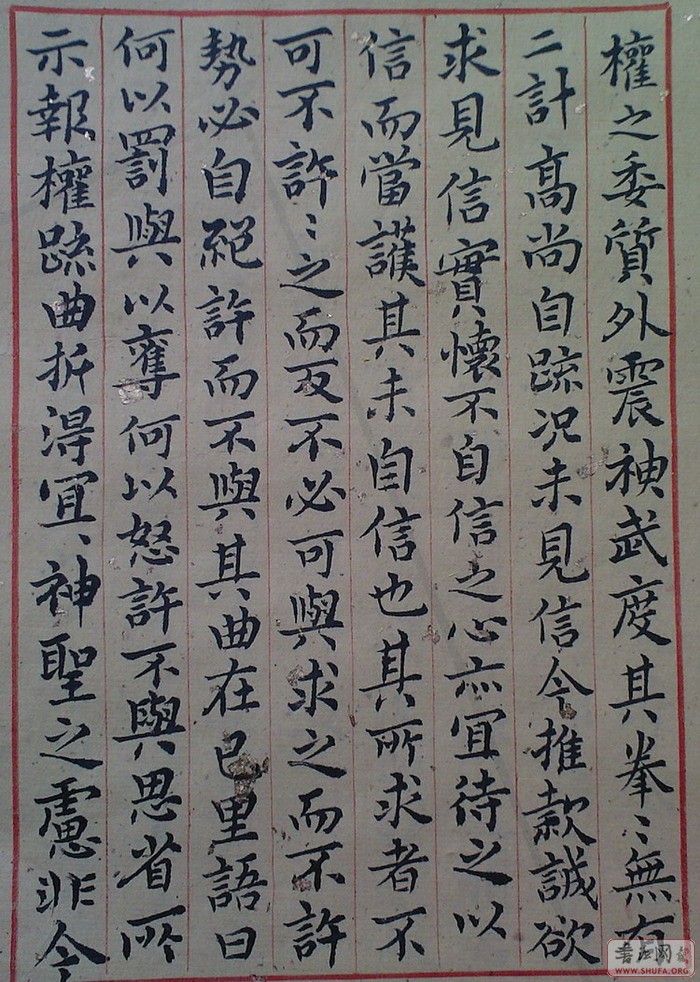 權之委質外震神武度其拳〻無有
二計高尚自疏況未見信今推款誠欲
求見信實懷不自信之心亦宜待之以
信而當護其未自信也其所求者不
可不許〻之而反不必可與求之而不許
勢必自絕許而不與其曲在己里語曰
何以罰與以奪何以怒許不與思省所
示報權疏曲折得宜〻神聖之慮非今
書法网
WWW.SHUFA.ORG